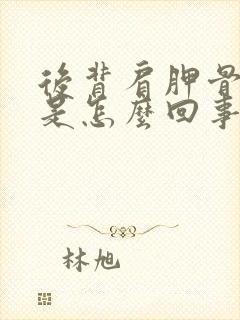 後背肩胛骨
是怎麼回事
林旭